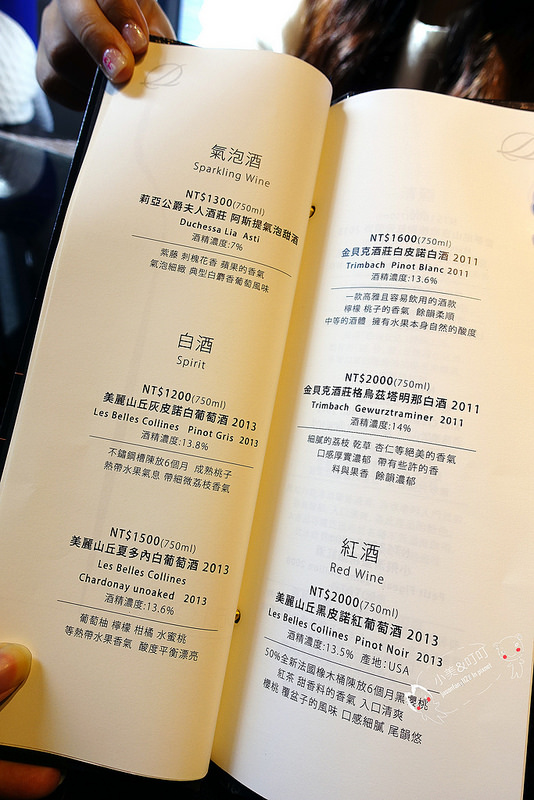 氣泡酒
Sparkling Wine
NT$1300(750ml)
莉亞公爵夫人酒莊 阿斯提氣泡甜酒
Duchessa Lia Asti
酒精濃度:7%
紫藤 刺槐花香 蘋果的香氣
氣泡細緻 典型白麝香葡萄風味
白酒
Spirit
NT$1200(750ml)
美麗山丘灰皮諾白葡萄酒 2013
Les Belles Collines Pinot Gris 2013
酒精濃度:13.8%
不鏽鋼槽陳放6個月 成熟桃子
熱帶水果氣息 帶細微荔枝香氣
NT$1500(750ml)
美麗山丘夏多內白葡萄酒 2013
Les Belles Collines
Chardonay unoaked 2013
酒精濃度:13.6%
葡萄柚 檸檬 柑橘 水蜜桃
等熱帶水果香氣 酸度平衡漂亮
NT$1600(750ml)
金貝克酒莊白皮諾白酒 2011
Trimbach Pinot Blanc 2011
酒精濃度:13.6%
一款高雅且容易飲用的酒款
檸檬 桃子的香氣 餘韻柔順
中等的酒體 擁有水果本身自然的酸度
NT$2000(750ml)
金貝克酒莊格烏茲塔明那白酒 2011
Trimbach Gewurztraminer 2011
酒精濃度:14%
細膩的荔枝 乾草 杏仁等絕美的香氣
口感厚實濃郁 帶有些許的香
料與果香 餘韻濃郁
紅酒
Red Wine
NT$2000(750ml)
美麗山丘黑皮諾紅葡萄酒 2013
Les Belles Collines Pinot Noir 2013
酒精濃度:13.5% 產地：USA
50%全新法國橡木桶陳放6個月黑櫻桃
紅茶 甜香料的香氣 入口清爽
櫻桃 覆盆子的風味 口感細膩 尾韻悠
小美&叮叮